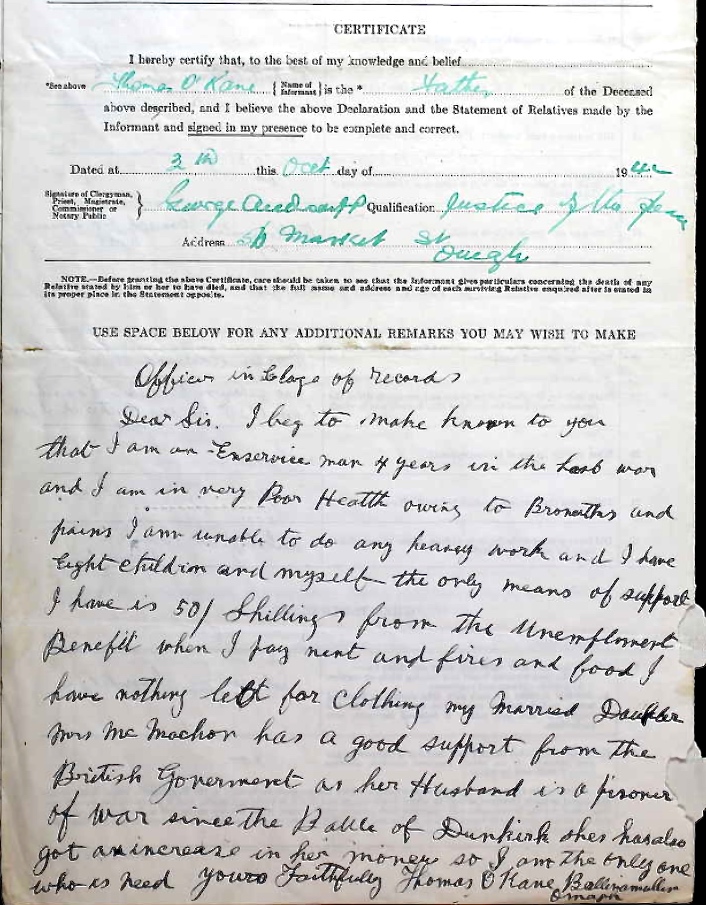 CERTIFICATE
I hereby certify that, to the best of my knowledge and belief
*See above Thomas O'Kane { Name of Informant } is the * Father of the Deceased
above described, and I believe the above Declaration and the Statement of Relatives made by the
Informant and signed in my presence to be complete and correct.
Dated at 3rd this Oct day of 19
Signature of Clergyman, Priest, Magistrate, Commissioner or Notary Public } George Qualification Justice of the
Address Market St
Omagh
NOTE.—Before granting the above Certificate, care should be taken to see that the Informant gives particulars concerning the death of any
Relative stated by him or her to have died, and that the full name and address and age of each surviving Relative enquired after is stated in
its proper place in the Statement opposite.
USE SPACE BELOW FOR ANY ADDITIONAL REMARKS YOU MAY WISH TO MAKE
Officer in Chage of records
Dear Sir. I beg to make known to you
that I am an Enservice man 4 years in the last war
and I am in very Poor Health owing to and
pains I am unable to do any heavey work and I have
Eight children and myself the only means of support
I have is 50/ Shillings from the Unemploment
Benefit when I pay rent and fires and food I
have nothing left for clothing my Married Daughter
Mrs Mc Machon has a good support from the
British Goverment as her Husband is a prisoner
of war since the Battle of Dunkirk shes has also
got an increase in her money so I am the only one
who is need yours Faithfully Thomas O Kane Ballinamullin
Omagh